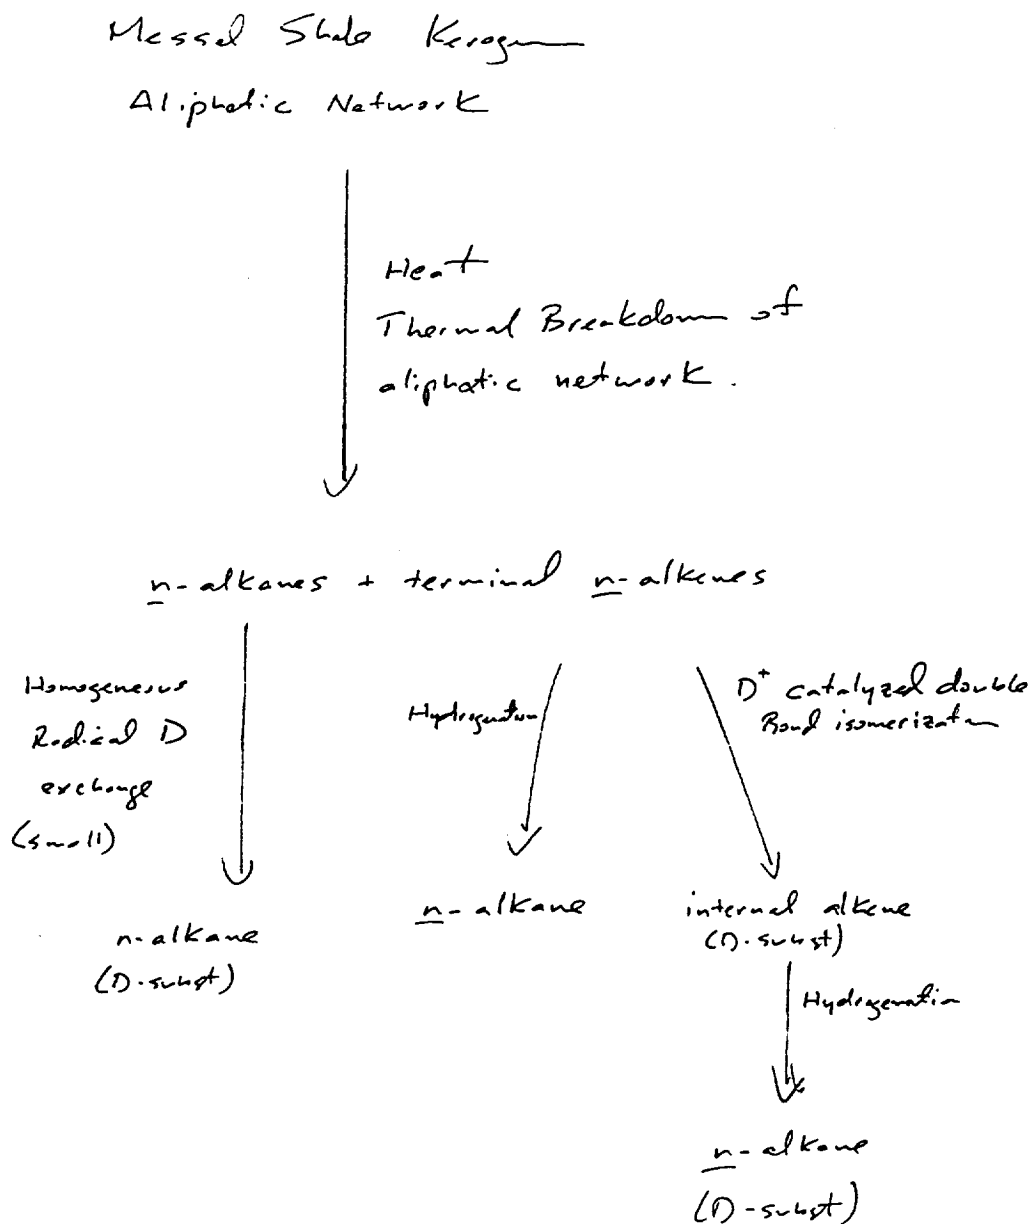 Messel Shale Kerogen
Aliphatic Network
Heat
Thermal Breakdown of
aliphatic network.
n-alkanes + terminal n-alkenes
Homogeneous
Radical D
exchange
(small)
Hydrogenation
D⁺ catalyzed double
Bond isomerization
n-alkane
(D-subst)
n-alkane
internal alkene
(D-subst)
Hydrogenation
n-alkane
(D-subst)